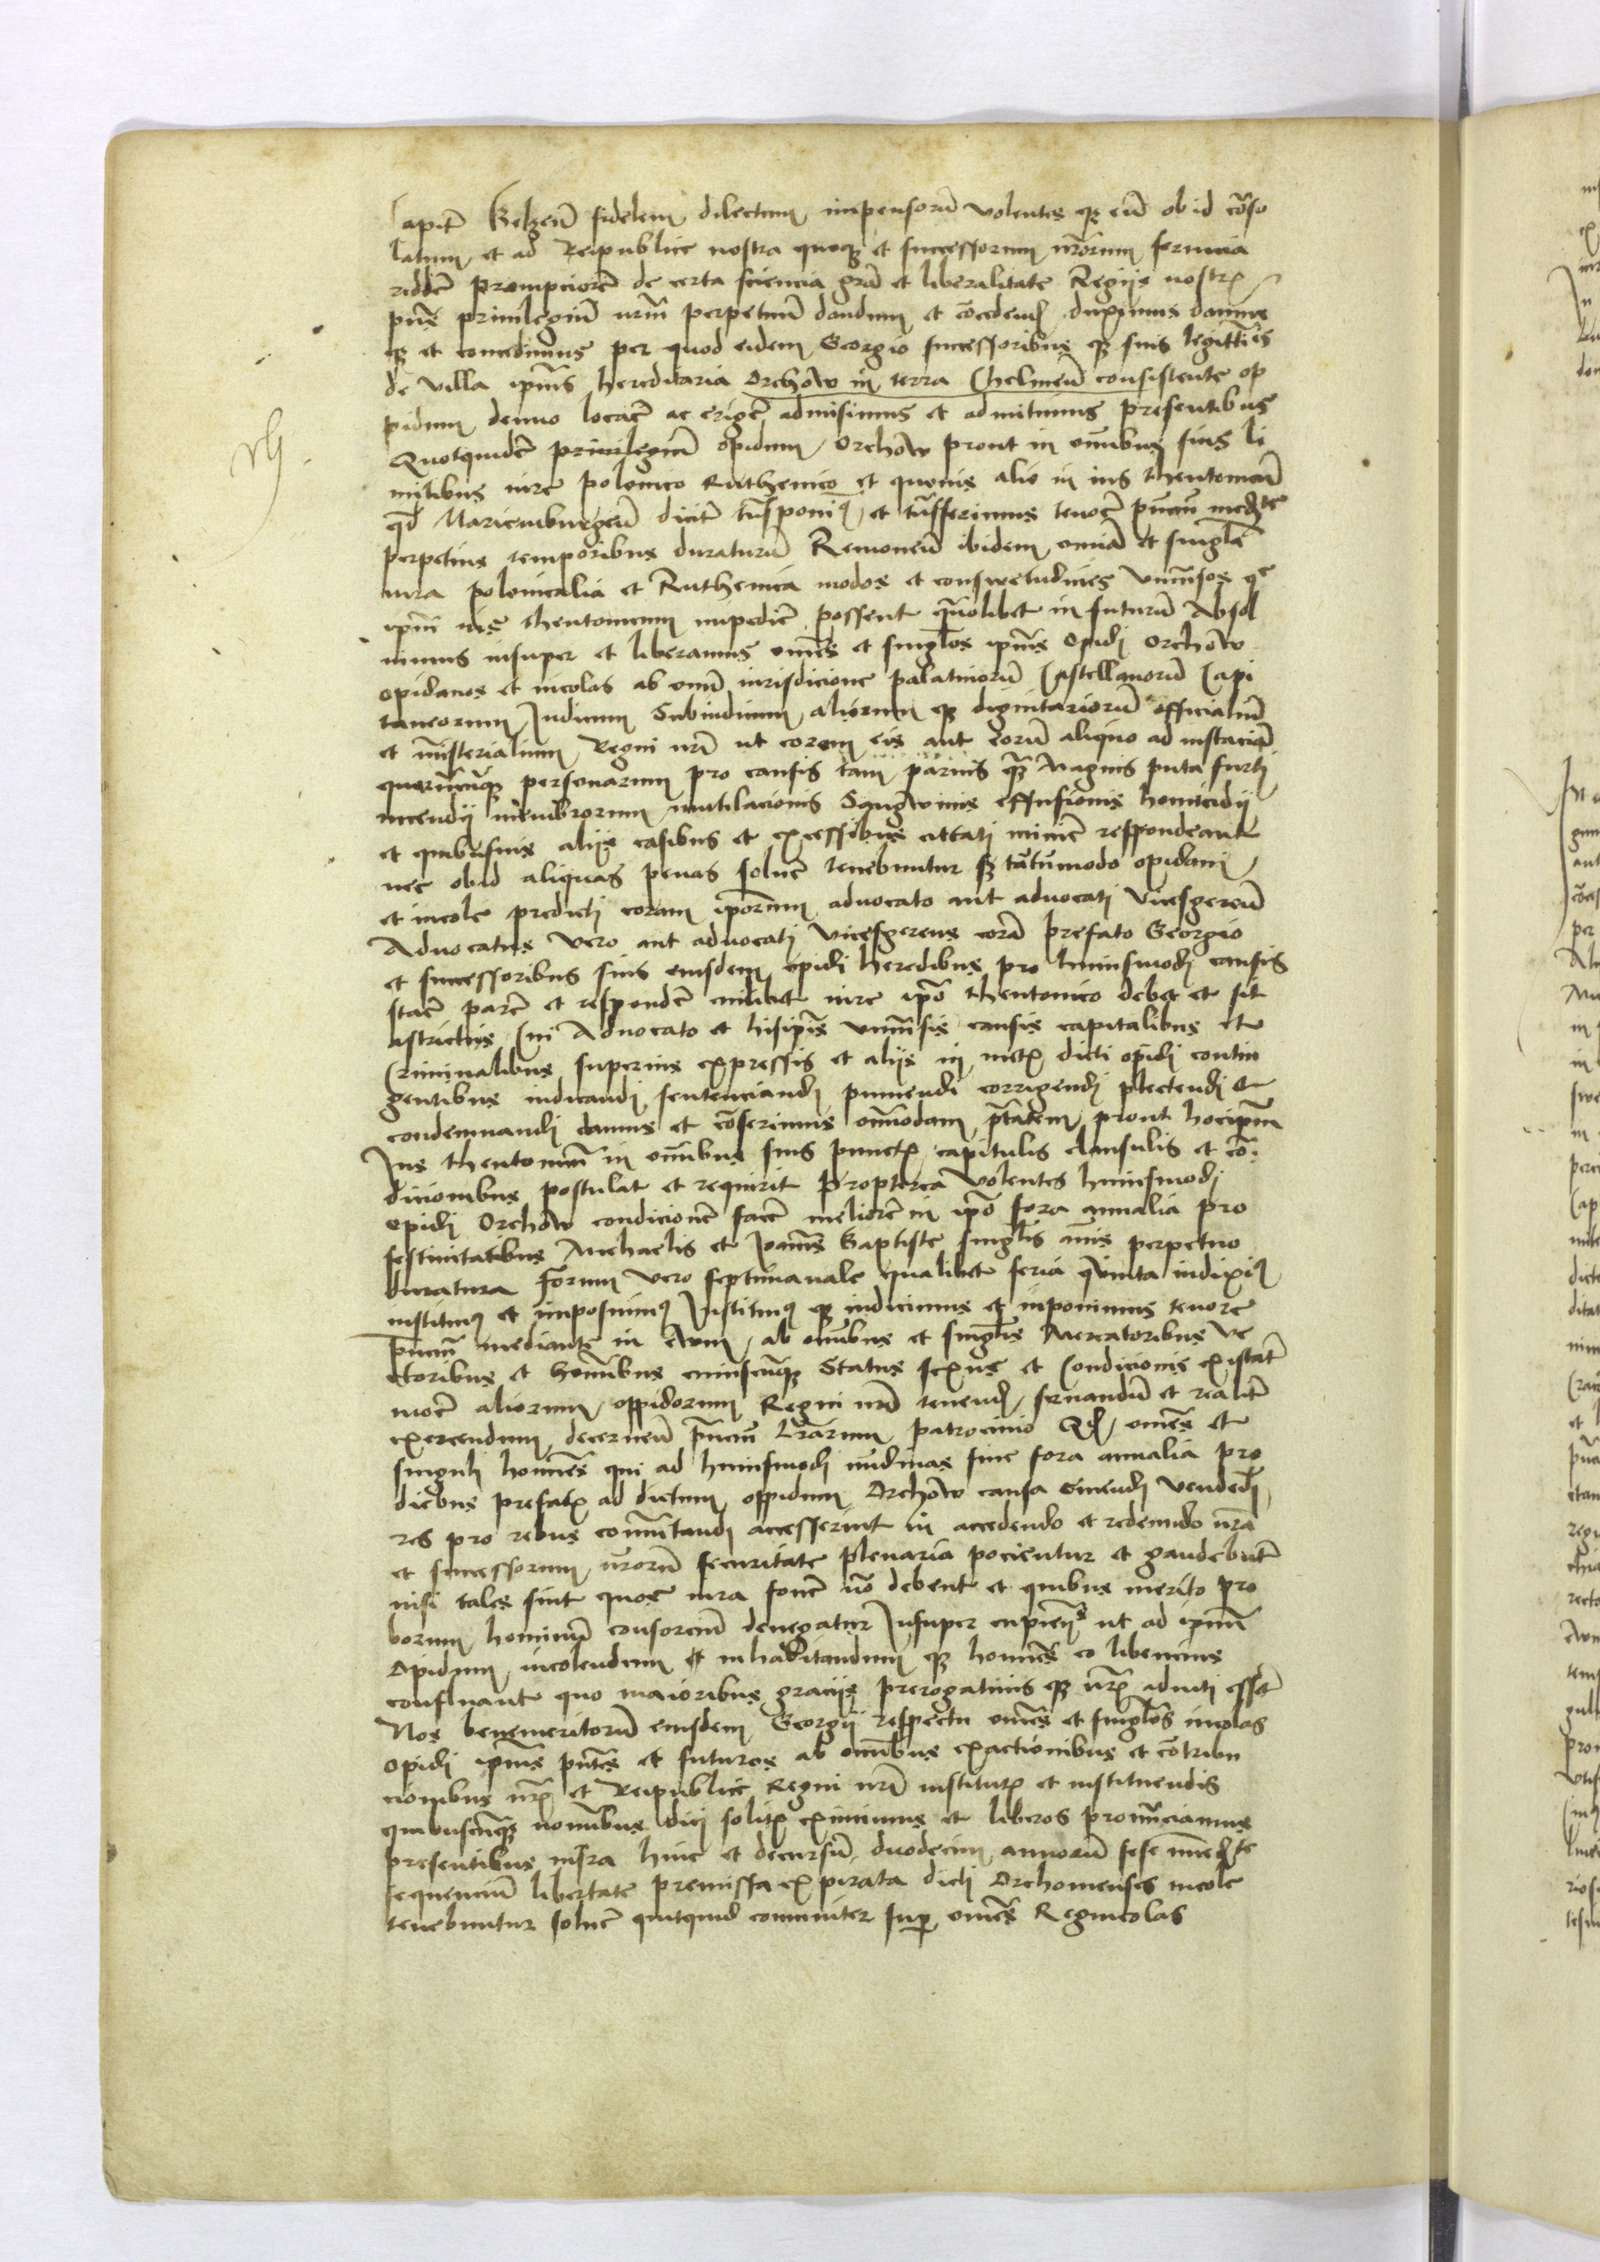 Capit Belzeñ fidelem dilectum impensorū volentes q̄ȝ eū ob id cōso
latum et ad Reipublice nostra quoqȝ et successorum nrōrum servicia
redder prompciorē de certa sciencia grā et liberalitate Regijs nostris
pn̄s privilegiū nrm̄ perpetuū dandum et cōcedend duximus damus
qȝ et concedimus per quod eidem Georgio successoribus qȝ suis legittīs
de villa ipiūs hereditaria Orchow in terra Chelmeñ consistente op
pidum denuo locare ac erigere admisimus et admittimus presentibus
Quotquidē privilegiū opidum Orchow prout in om̄ibus suis li
mitibus iure polonico Ruthenico et quovis alio in ius theutonicū
qd Mariemburgeñ dicit trāsponim et trāsferimus tenore pn̄ciū medte
perpetuis temporibus duraturū Removeñ ibidem omia et singla
iura polonicalia et Ruthenica modos et conswetudines unīusos q̄
ipm̄ ius theutonicum impedire possent quōlibet in futurū Absol
vimus insuper et liberamus om̄es et singlos ipiūs opidi Orchow
opidanos et incolas ab omī iurisdicione palatinorū Castellanorū Capi
taneorum Iudicum Subiudicum aliorum qȝ dignitariorū officialiū
et ministerialium Regni nrī ut coram eis aut eorū aliquo ad instaciā
quarūcūqȝ personarum pro causis tam parvis q̄ȝ Magnis puta furti
incendij membrorum mutilacionis Sangwinis effusionis homicidij
et quibusvis alijs casibus et excessibus cittati minime respondeant
nec obid aliquas penas solvere tenebuntur sȝ tātūmodo opidani
et incole predicti coram ipōrum advocato aut advocati vicesgereñ
Advocatus vero aut advocati vicesgerens corā prefato Georgio
et successoribus suis eiusdem opidi heredibus pro huiusmodi causis
stare parere et respondere cuilibet iure ipō theutonico debet et sit
astrictus Cui Advocato et hisipīs unīusis causis capitalibus et
Criminalibus superius expressis et alijs in metis dicti opidi contin
gentibus iudicandi sentenciandi puniendi corrigendi plectendi et
condemnandi damus et cōferimus om̄imodam ptātem prout hocipm̄
Ius theutonicū in om̄ibus suis punctis capitulis clausulis et cō
dicionibus postulat et requirit Propterea volentes huiusmodi
opidi Orchow condicionē facere meliorē in ipō fora annalia pro
festivitatibus Michaelis et Ioannis Baptiste singlis annis perpetuo
duratura Forum vero septimanale qualibet feria quinta indixim
instituim et imposuim Instituim qȝ indicimus et inponimus tenore
pn̄ciū mediante in Evum ab om̄ibus et singlis Mercatoribus Ve
ctoribus et homībus cuiuscūqȝ Status sexus et Condicionis existāt
more aliorum oppidorum Regni nrī tenend servandū et realiter
exercendum decerneñ pn̄ciū lrārum patrocinio Qd om̄es et
singuli homīes qui ad huiusmodi nundinas sive fora annalia pro
diebus prefatis ad dictum oppidum Orchow causa emendi vendedi
res pro rebus com̄utandi accesserint in accedendo et redeundo nrā
et successorum nrōrū securitate plenaria pocientur et gaudebūt
nisi tales sint quos iura fovere nō debent et quibus merito pro
borum hominū consorciū denegatur Insuper cupieñs ut ad ipm̄
opidum incolendum et inhabitandum qȝ homīes eo libencius
confluant quo maioribus gracijs prerogativis qȝ nrīs aduti essēt
Nos benemeritorū eiusdem Georgij respectu om̄es et singlos incolas
opidi ipiūs pn̄tes et futuros ab om̄ibus exactionibus et cōtribu
cionibus nrīs et Reipublice Regni nrī institutis et instituendis
quibuscūqȝ nomībus dici solitis eximimus et liberos pronūciamus
presentibus infra hinc et decursū duodecim annorū sese im̄edte
sequenciū libertate premissa expirata dicti Orchovienses incole
tenebuntur solvere quitquid com̄uniter sup om̄es Regnicolas